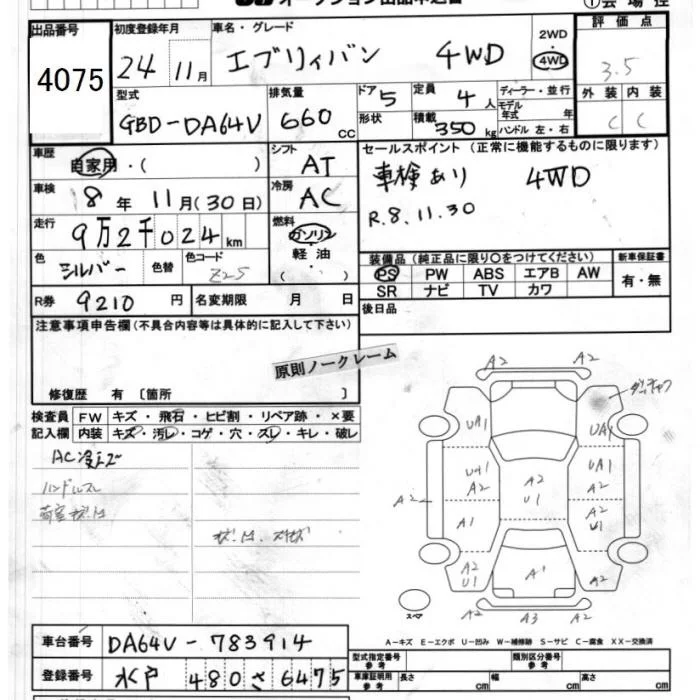 ①会場控
出品番号 4075
初度登録年月 24 11月
車名・グレード エブリィバン 4WD
2WD
4WD
評価点 3.5
外装 内装
C C
型式 GBD-DA64V
排気量 660 CC
ドア 5
形状
定員 4人
積載 350 kg
ディーラー・並行
モデル年式 年
ハンドル 左・右
車歴 自家用・( )
シフト AT
セールスポイント(正常に機能するものに限ります)
車検あり 4WD
R.8.11.30
車検 8年 11月(30日)
冷房 AC
走行 9万2千024km
燃料 ガソリン・軽油・( )
色 シルバー 色替
色コード Z2S
装備品(純正品に限り○をつけてください)
PS PW ABS エアB AW
SR ナビ TV カワ
新車保証書 有・無
R券 9210円 名変期限 月 日
後日品
注意事項申告欄(不具合内容等は具体的に記入して下さい)
原則ノークレーム
修復歴 有〔箇所 〕
検査員記入欄
FW キズ・飛石・ヒビ割・リペア跡・×要
内装 キズ・汚レ・コゲ・穴・スレ・キレ・破レ
ハンドルスレ
A2 A2
UA1 UA1
UA1 A2 UA1
A2 U1 A2
A2
A1 A2 U1
A2 U1 A1 A2
A2 A3 A2
スペア
A-キズ E-エクボ U-凹み W-補修跡 S-サビ C-腐食 XX-交換済
車台番号 DA64V-783914
登録番号 水戸 480 さ 6475
型式指定番号 参考
類別区分番号 参考
車庫証明用 参考 長さ cm 幅 cm 高さ cm